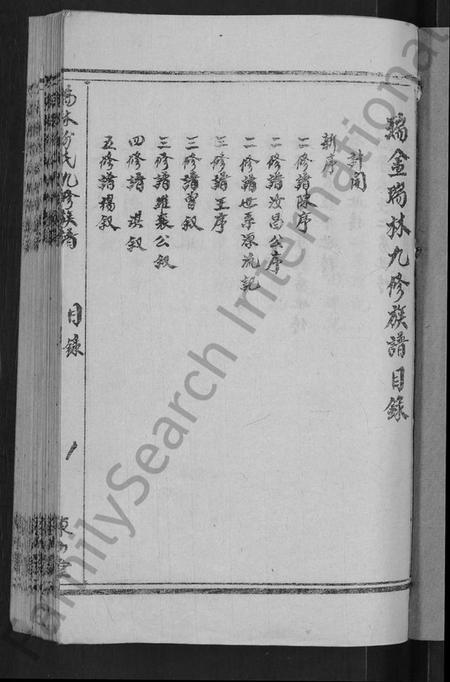 瑞金瑞林九修族譜目錄
計開
新序
一修譜陳序
二修譜汝昌公序
二修譜世系源流記
三修譜王序
三修譜曾叙
三修譜維裘公叙
四修譜淇叙
五修譜楊叙
瑞林 氏九修族譜
目錄
FamilySearch International